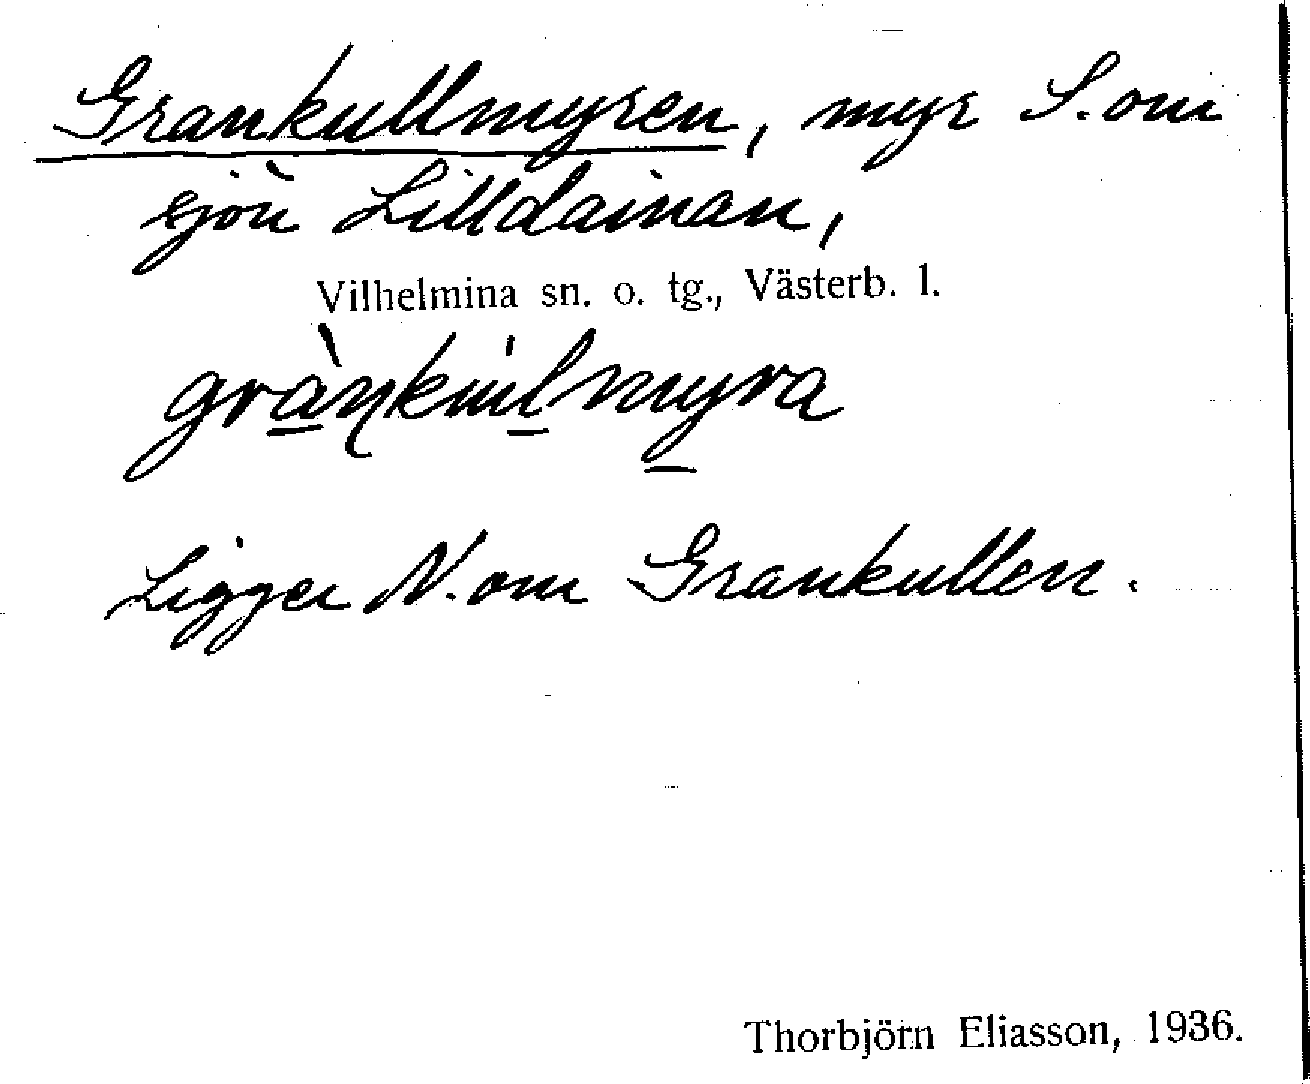 Grankullmyren, myr S. om
sjön Lilldainan,
Vilhelmina sn. o. tg., Västerb. l.
grànkuĺmyra
Ligger N. om Grankullen.
Thorbjörn Eliasson, 1936.